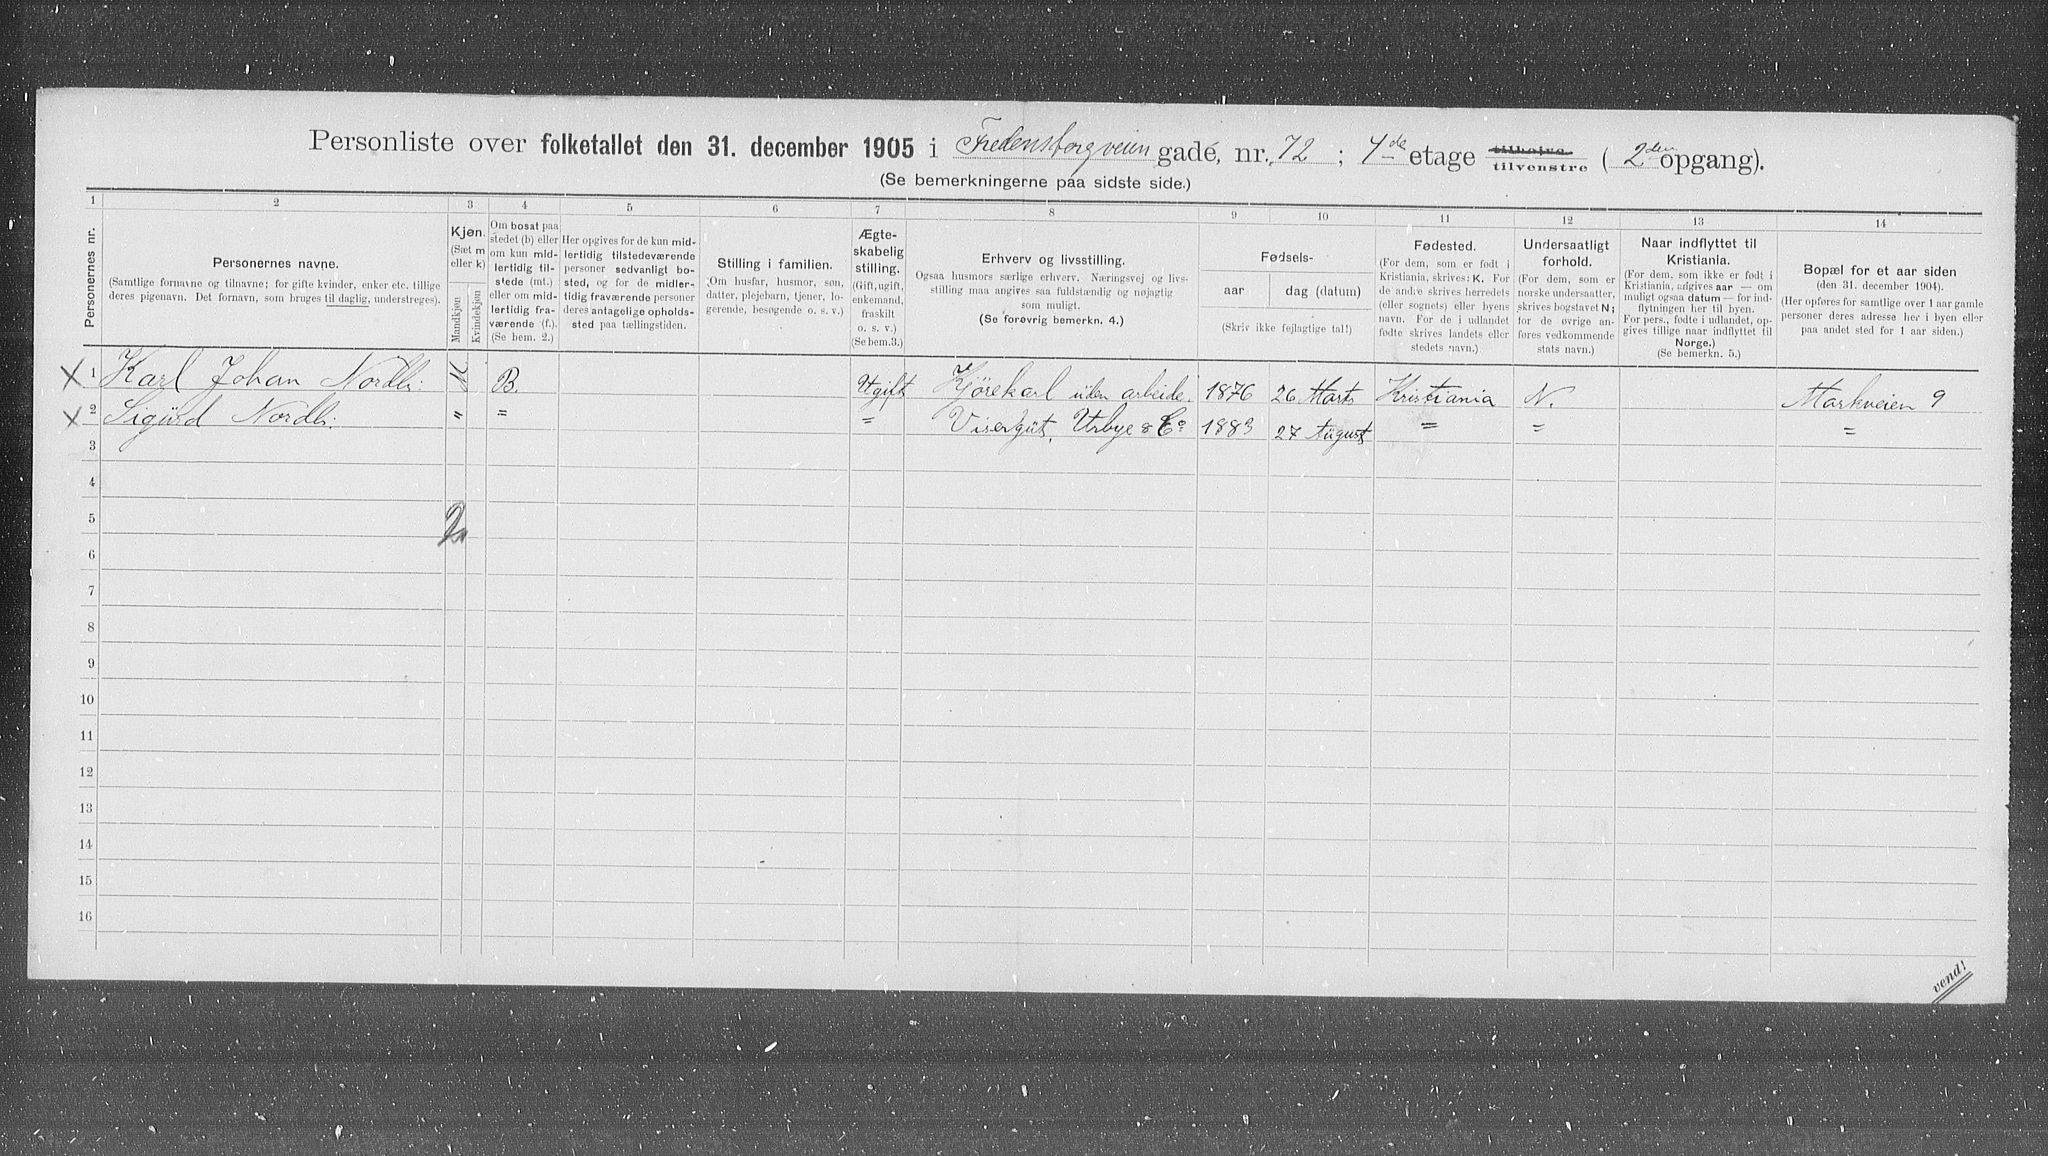 Personliste over folketallet den 31. december 1905 i Fredensborgveien gade, nr. 72 ; 4de etage tilhøire tilvenstre ( 2den opgang).
(Se bemerkningerne paa sidste side.)
1 2 3 4 5 6 7 8 9 10 11 12 13 14
Personernes nr.
Personernes navne.
(Samtlige fornavne og tilnavne; for gifte kvinder, enker etc. tillige
deres pigenavn. Det fornavn, som bruges til daglig, understreges).
Kjøn.
(Sæt m
eller k)
Mandkjøn
Kvindekjøn
Om bosat paa
stedet (b) eller
om kun mid-
lertidig til-
stede (mt.)
eller om mid-
lertidig fra-
værende (f.).
(Se bem. 2.)
Her opgives for de kun mid-
lertidig tilstedeværende
personer sedvanligt bo-
sted, og for de midler-
tidig fraværende personer
deres antagelige opholds-
sted paa tællingstiden.
Stilling i familien.
(Om husfar, husmor, søn,
datter, plejebarn, tjener, lo-
gerende, besøgende o. s. v.)
Ægte-
skabelig
stilling.
(Gift, ugift,
enkemand,
fraskilt
o. s. v.)
(Se bem.3.)
Erhverv og livsstilling.
Ogsaa husmors særlige erhverv. Næringsvej og livs-
stilling maa angives saa fuldstændig og nøjagtig
som muligt.
(Se forøvrig bemerkn. 4.)
Fødsels-
aar
dag (datum)
(Skriv ikke fejlagtige tal!)
Fødested.
(For dem, som er født i
Kristiania, skrives: K. For
de andre skrives herredets
(eller sognets) eller byens
navn. For de i udlandet
fødte skrives landets eller
stedets navn.)
Undersaatligt
forhold.
(For dem, som er
norske undersaatter,
skrives bogstavet N;
for de øvrige an-
føres vedkommende
stats navn.)
Naar indflyttet til
Kristiania.
(For dem, som ikke er født i
Kristiania, angives aar — om
muligt ogsaa datum — for ind-
flytningen her til byen.
For pers., fødte i udlandet, op-
gives tillige naar indflyttet til
Norge.)
(Se bemerkn. 5.)
Bopæl for et aar siden
(den 31. december 1904).
(Her opføres for samtlige over 1 aar gamle
personer deres adresse her i byen eller
paa andet sted for 1 aar siden.)
X 1 Karl Johan Nordli. M B. Ugift Kjørekarl uden arbeide. 1876 26 Marts Kristiania N. Markveien 9
X 2 Sigurd Nordli. " = = Visergut, Urbye & Co 1883 27 August = = =
3
4
5
6
7
8
9
10
11
12
13
14
15
16
vend!